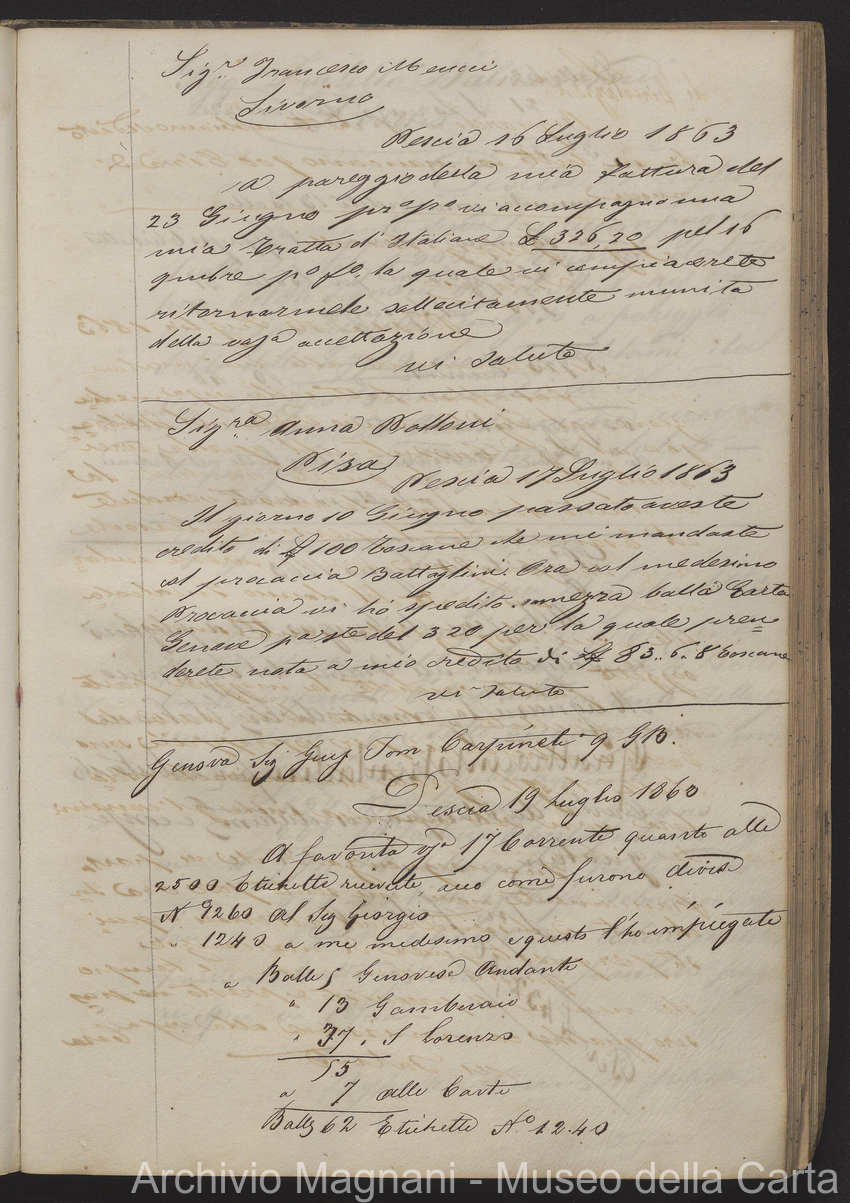 Sig.r Francesco Meucci
Livorno
Pescia 16 Luglio 1863
a pareggio della mia fattura del
23 Giugno pº pº vi accompagno una
mia Tratta d'Italiane £ 326,20 pel 16
9mbre pº fº, la quale vi compiacerete
ritornarmele sollecitamente munita
della vosa accettazione
vi saluto
Sig.ra Anna Pottoni
Pisa
Pescia 17 Luglio 1863
Il giorno 10 Giugno passato aveste
credito di £ 100 Toscane che mi mandaste
col procaccia Battaglini. Ora col medesimo
Procaccia vi ho spedito mezza balla Carta
Genove pste del 320 per la quale pren=
derete nota a mio credito di £ 83.. 6. 8 Toscane
vi saluto
Genova Sig Tom Carpineti q GB.
Pescia 19 Luglio 1863
A favorita vª 17 Corrente quanto alle
2500 Etichette ricevute ecco come furono divise
Nº 1260 al Sig Giorgio
" 1240 a me medesimo e queste l'ho impiegate
a Balle 5 Genovese Andante
" 13 Gamberaio
" 37 " S Lorenzo
55
a 7 alle Carte
Balle 62 Etichette Nº 1240
Archivio Magnani - Museo della Carta